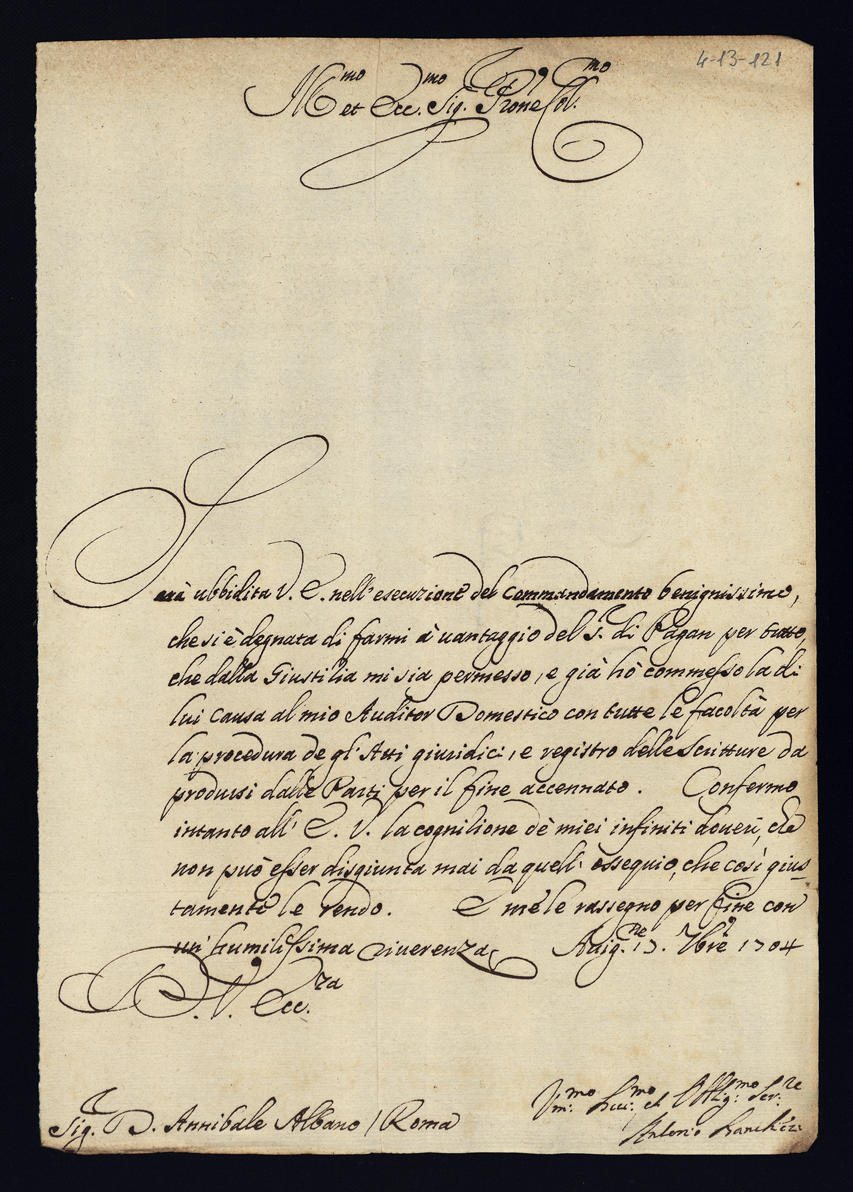 4-13-121
Ill.mo et Ecc.mo Sig.r P̃rone Col.mo
Sarà ubbidita V. E. nell'esecuzione del Commandamento benignissimo,
che si è degnata di farmi à vantaggio del S.r di Pagan per tutto,
che dalla Giustitia mi sia permesso, e già hò commesso la di
lui causa al mio Auditor Domestico con tutte le facoltà per
la procedura de gl'Atti giuridici, e registro delle Scritture da
prodursi dalle Parti per il fine accennato. Confermo
intanto all' E. V. la cognitione dè miei infiniti doveri, che
non può esser disgiunta mai da quell' ossequio, che così gius-
tamente le rendo. E mè le rassegno per fine con
un' humilissima riverenza. Avig.ne 13. 7bre 1704
D. V. Ecc.za
Sig.r D. Annibale Albano / Roma
Um.mo Dev.mo et Obblig.mo Ser.re
Antonio Banchieri